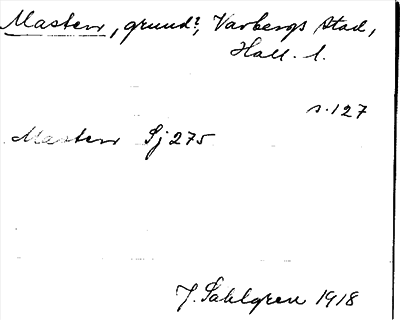 Masten, grund?, Varbergs stad,
Hall. l.
s. 127
Masten Sj 275
J. Sahlgren 1918